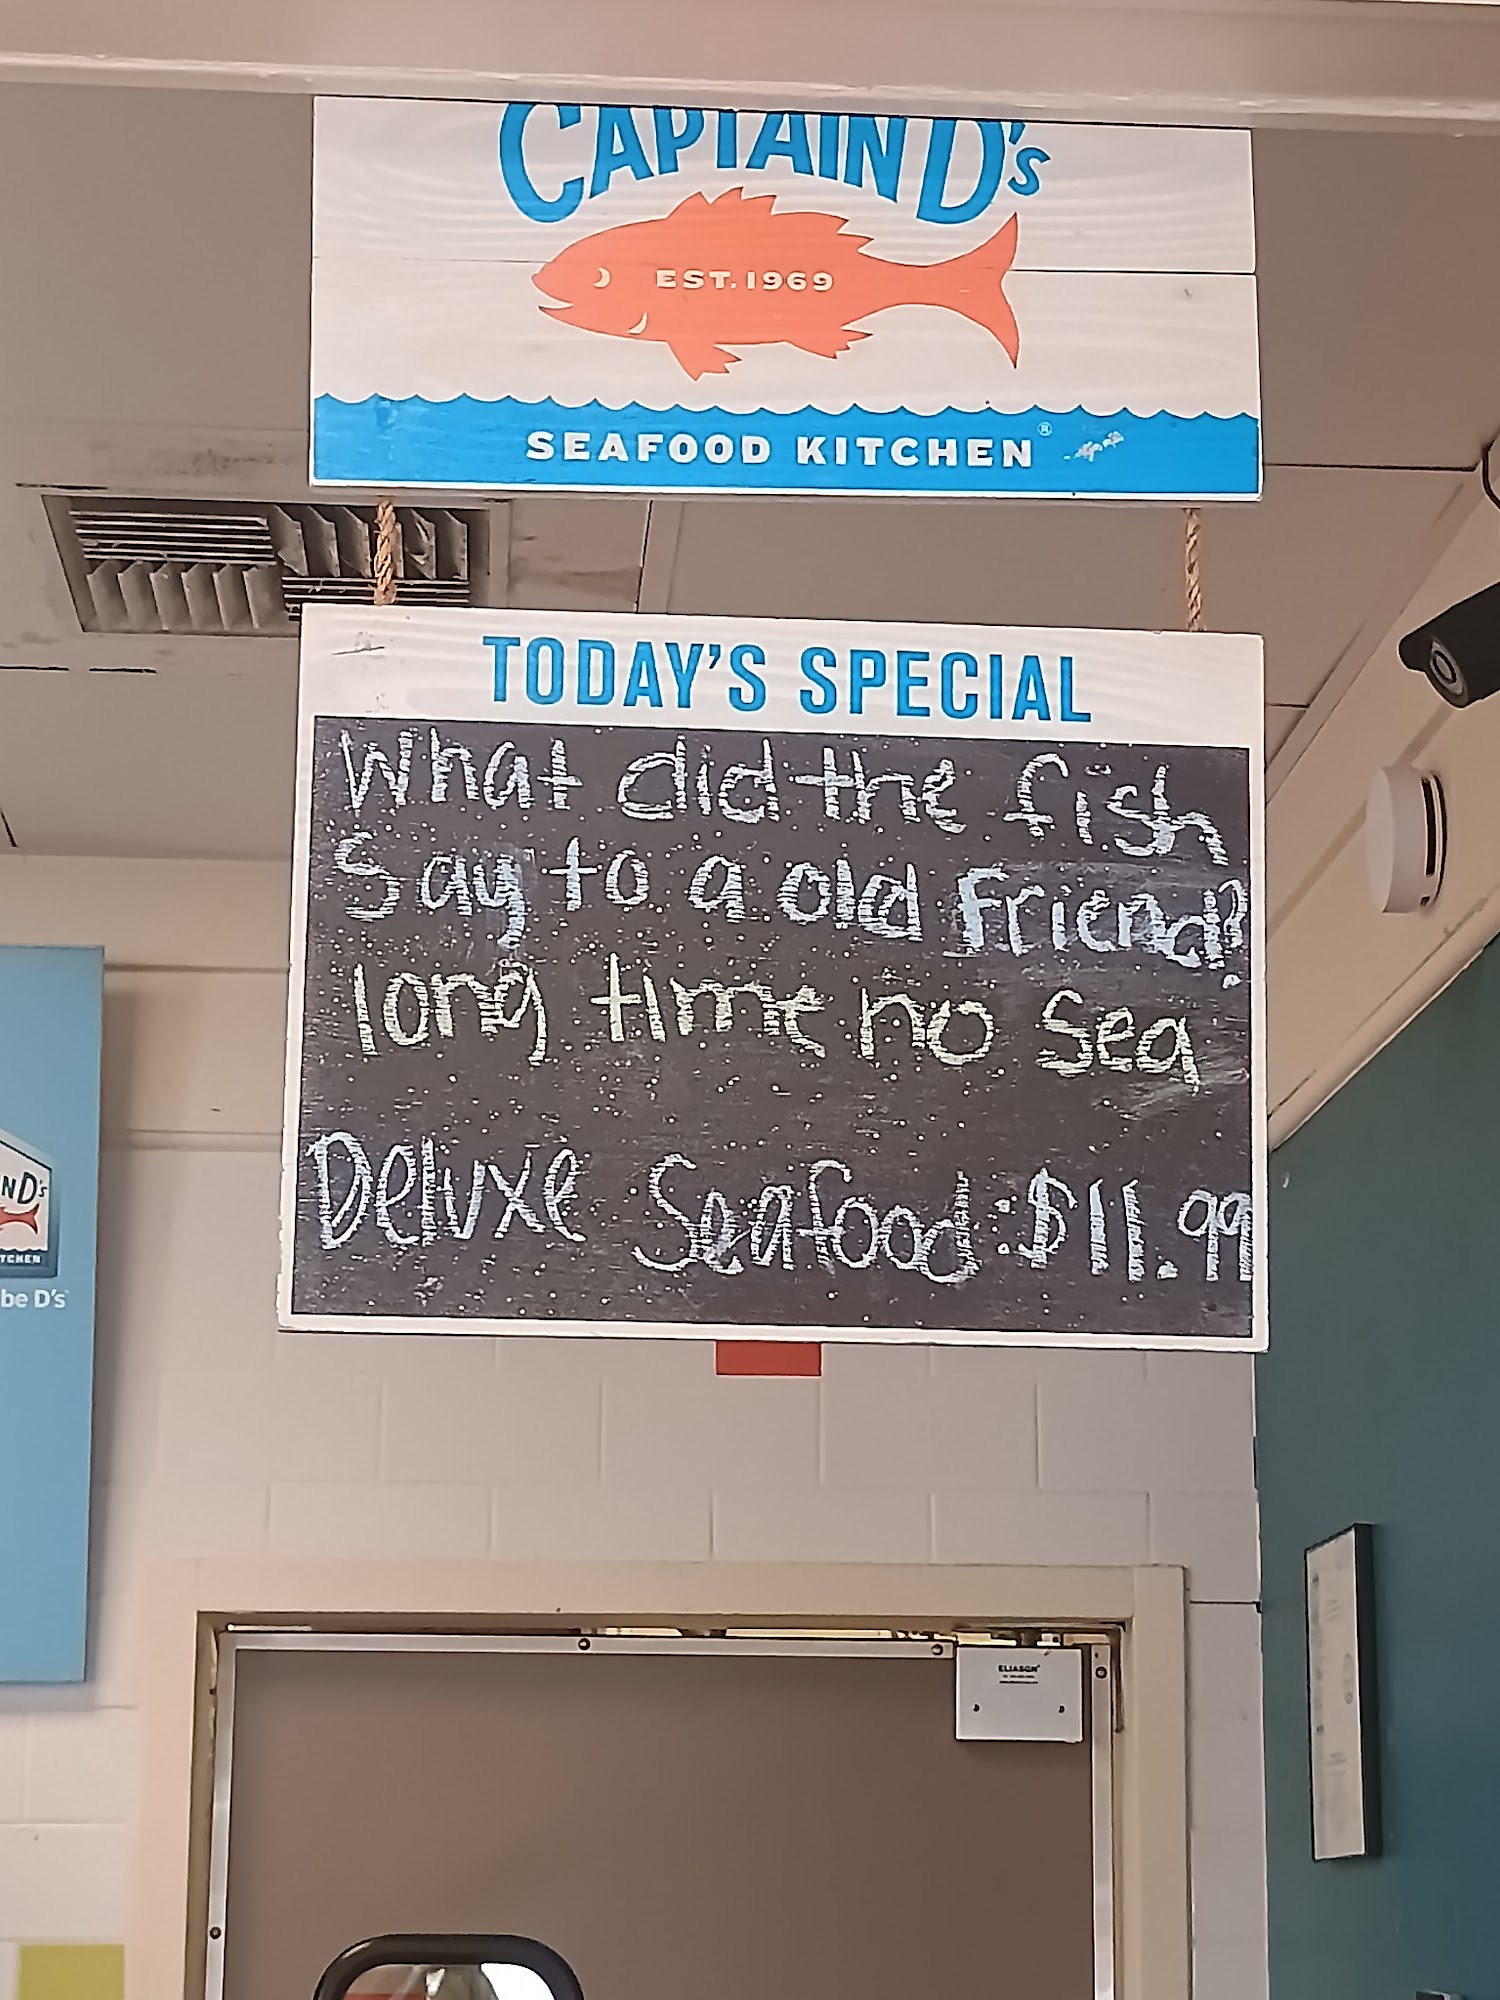 CAPTAIN D's
EST. 1969
SEAFOOD KITCHEN®
TODAY'S SPECIAL
What did the fish
Say to a old Friend?
long time no Sea
Deluxe Seafood: $11.99
N D's
TCHEN
be D's
ELIASON